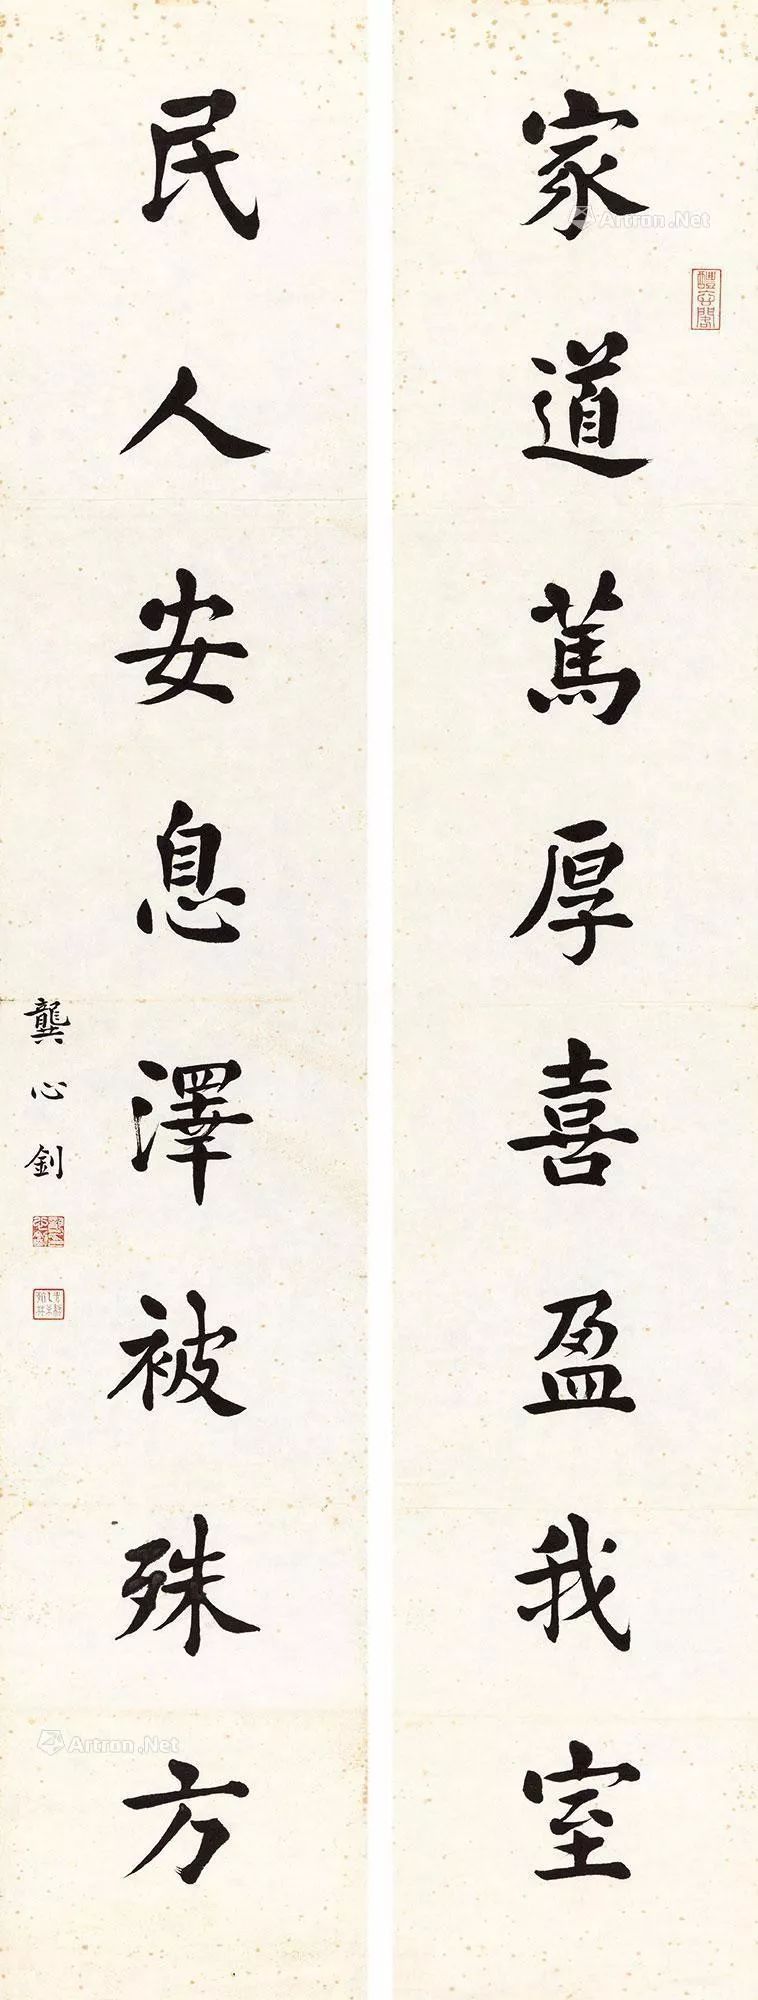 家道篤厚喜盈我室
民人安息澤被殊方
龔心釗
Artron.Net
Artron.Net